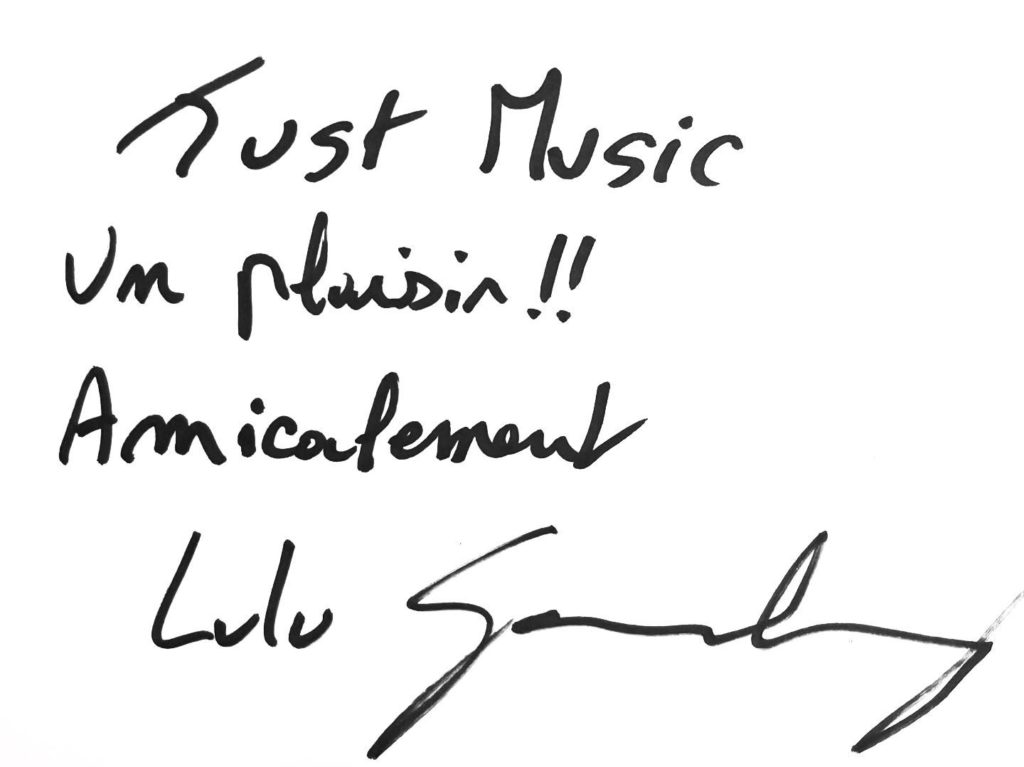 Just Music
Un plaisir !!
Amicalement
Lulu